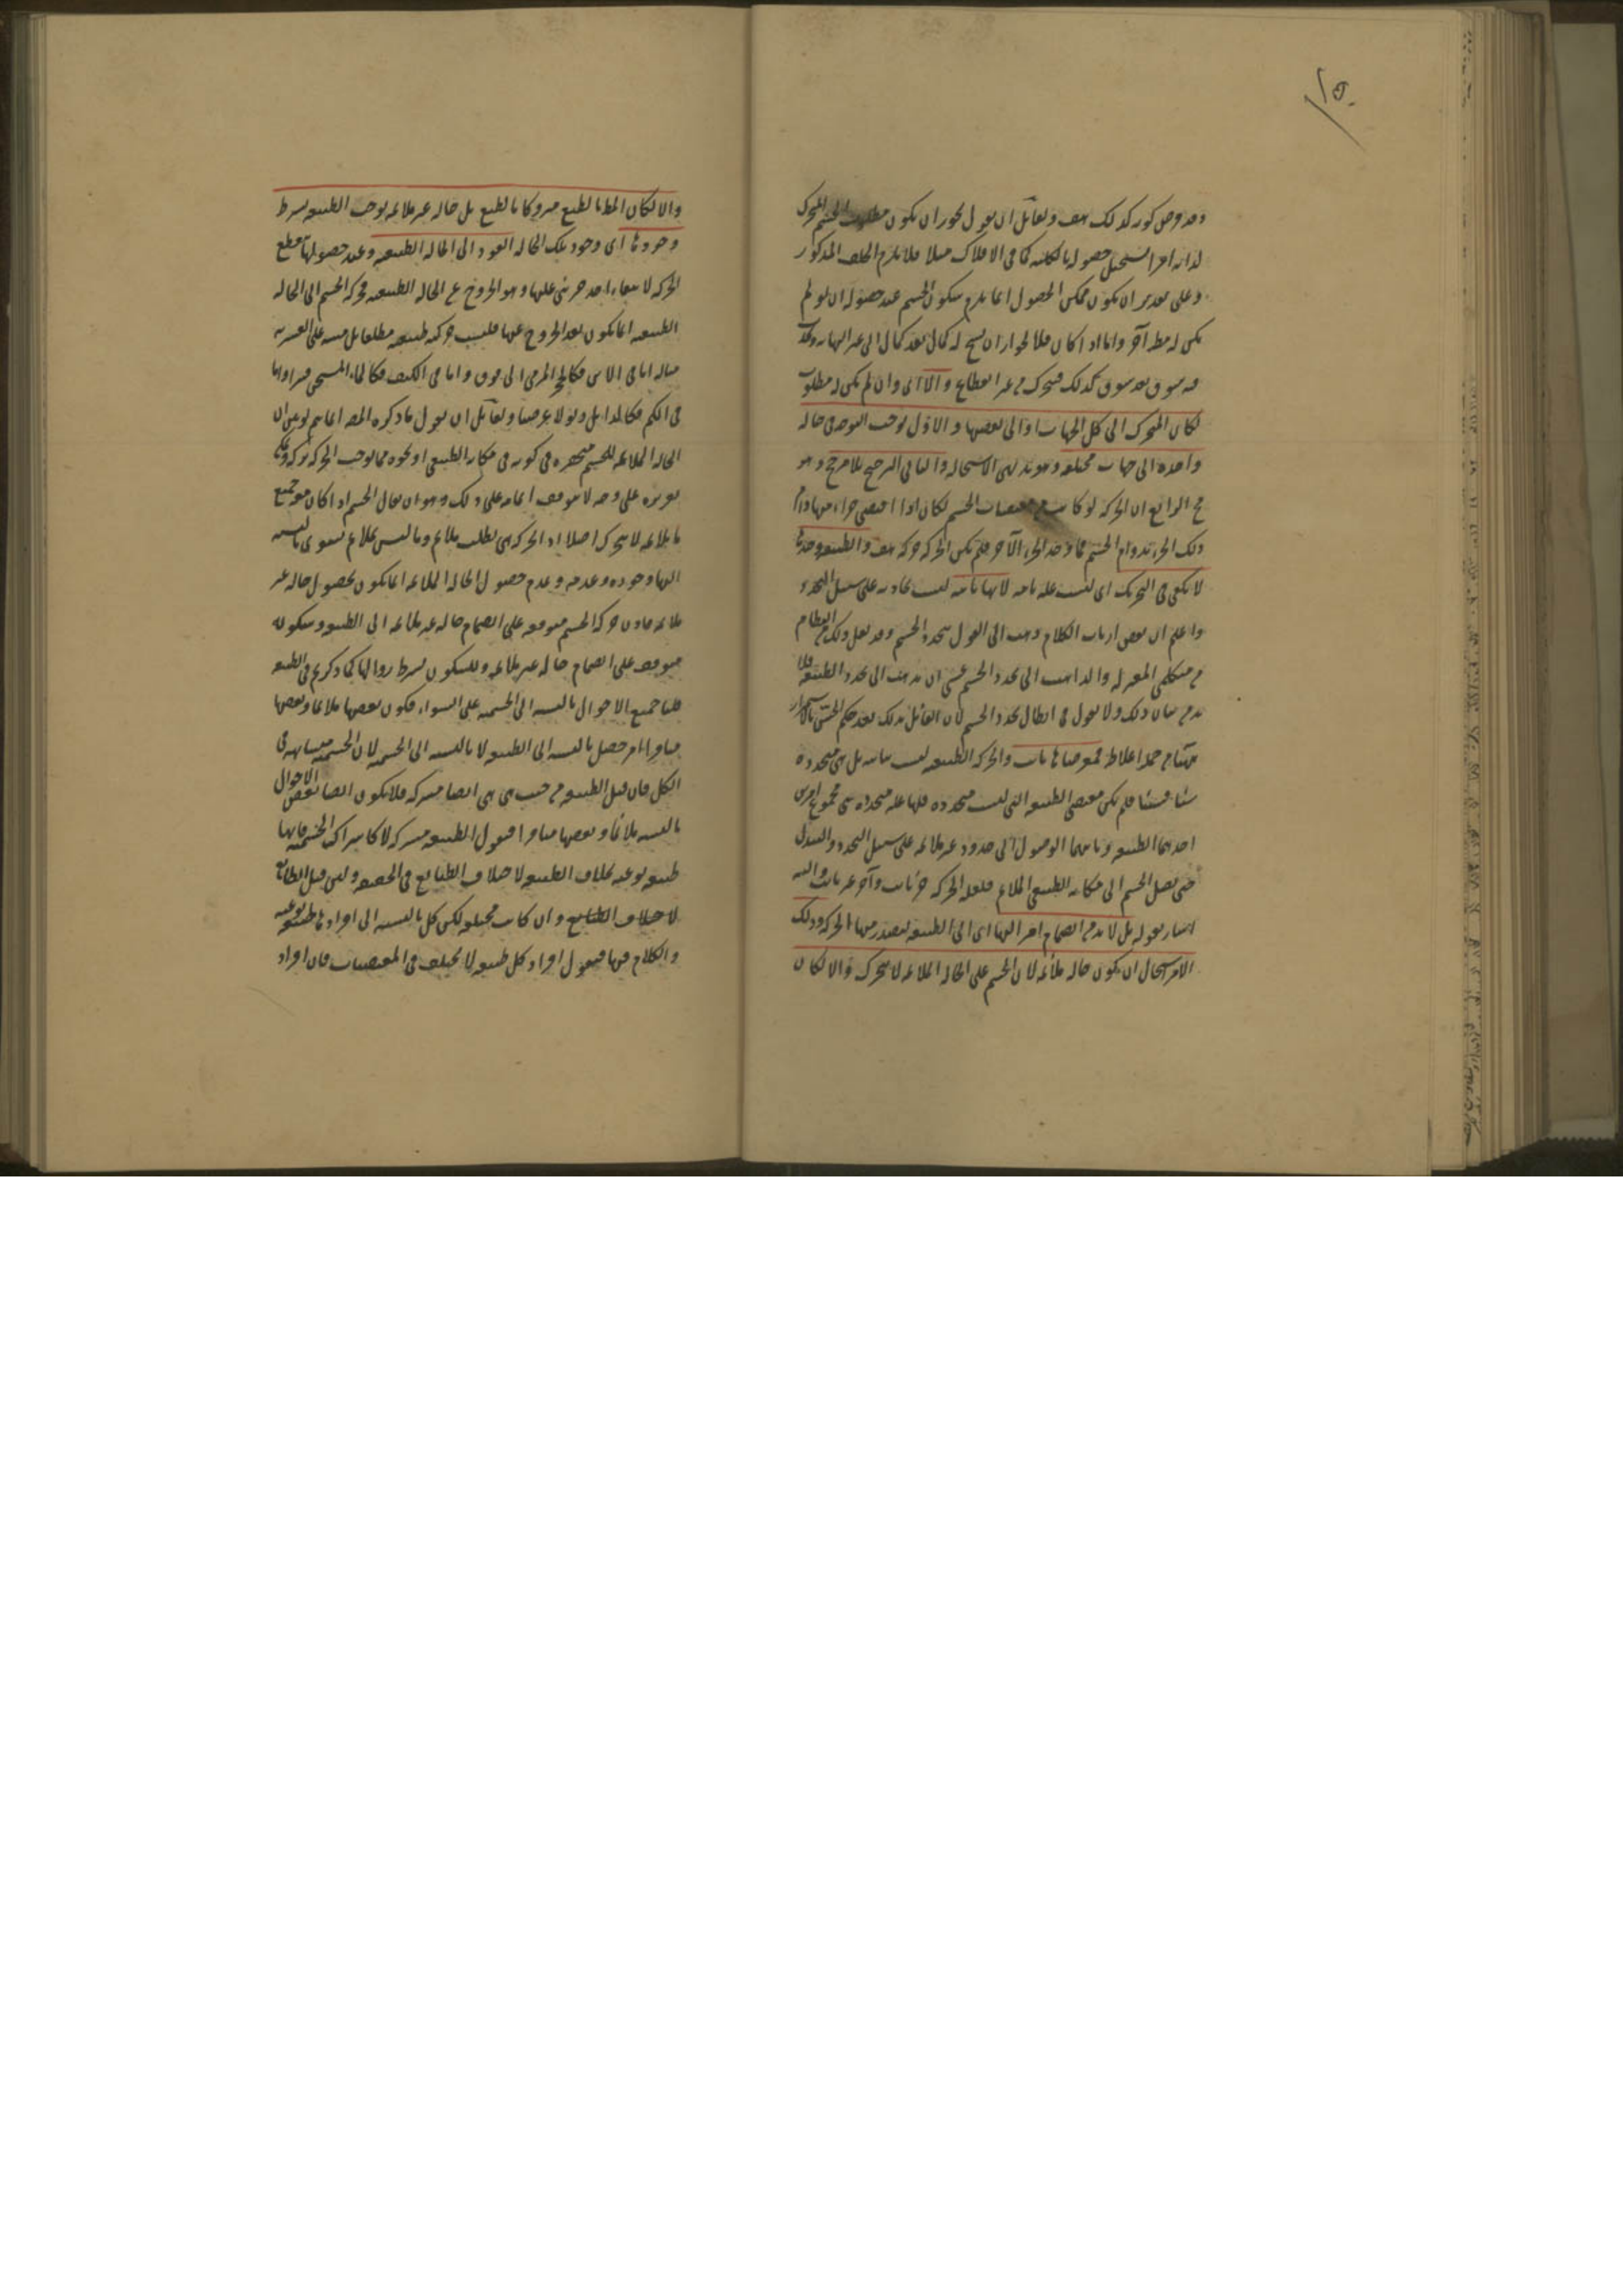 ١٥٠
وقد فرض كونه كذلك هف ولقائل ان يقول يجوز ان يكون مطلوب الجسم المتحرك
لذاته امرا يستحيل حصوله بالكلية كما في الافلاك مثلا فلا يلزم الخلف المذكور
وعلى تقدير ان يكون ممكن الحصول انما يلزم سكون الجسم عند حصوله ان لو لم
يكن له مط آخر واما اذا كان فلا لجواز ان يسنح له كمال بعد كمال الى غير النهاية
شوق بعد شوق كذلك فيتحرك من غير انقطاع والا اى وان لم يكن له مطلوب
لكان المتحرك الى كل الجهات او الى بعضها والاول يوجب التوجه في حالة
واحدة الى جهات مختلفة وهو بديهى الاستحالة والثانى الترجيح بلا مرجح وهو
مح الرابع ان الحركة لو كانت من مقتضيات الجسم لكان اذا اقتضى جزءا منها دام
ذلك الجزء بدوام الجسم فما وجد الجزء الآخر فلم يكن الحركة حركة هف والطبيعة وحدها
لا تكفى في التحريك اى ليست علة تامة لانها ثابتة ليست حادثة على سبيل التجدد
واعلم ان بعض ارباب الكلام ذهب الى القول بتجدد الجسم وقد نقل ذلك عن النظام
من متكلمى المعتزلة والذاهب الى تجدد الجسم عسى ان يذهب الى تجدد الطبيعة فلا
بد من بيان ذلك ولا يقول في ابطال تجدد الجسم لان القائل بذلك يعد حكم الحس بالاستمرار
من جملة اغلاطه فمقتضاها ثابت والحركة الطبيعية ليست ثابتة بل هى متجددة
شيئا فشيئا فلم يكن مقتضى الطبيعة التى ليست متجددة فلها علة متجددة هى مجموع امرين
احدهما الطبيعة وثانيهما الوصول الى حدود غير ملائمة على سبيل التجدد والتبدل
حتى يصل الجسم الى مكانه الطبيعى الملائم فلعلة الحركة جزء ثابت وآخر غير ثابت واليه
اشار بقوله بل لا بد من انضمام امر اليها اى الى الطبيعة ليصدر منها الحركة وذلك
الامر استحال ان يكون حالة ملائمة لان الجسم على الحالة الملائمة لا يتحرك والا لكان
والا لكان المط بالطبع متروكا بالطبع بل حالة غير ملائمة توجب الطبيعة بشرط
وجودها اى وجود تلك الحالة العود الى الحالة الطبيعية وعند حصولها تنقطع
الحركة لانتفاء احد جزئى علتها وهو الخروج عن الحالة الطبيعية فحركة الجسم الى الحالة
الطبيعية انما يكون بعد الخروج عنها فليست حركة طبيعية مطلقا بل مبنية على القسرية
مثاله اما في الاين فكالحجر المرمى الى فوق واما في الكيف فكالماء المسخن قسرا واما
في الكم فكالذابل ذبولا مرضيا ولقائل ان يقول ما ذكره المص انما يتم لو بين ان
الحالة الملائمة للجسم منحصرة في كونه في مكانه الطبيعى او نحوه مما يوجب الحركة تركه ويمكن
تقريره على وجه لا يتوقف اتمامه على ذلك وهو ان يقال الجسم اذا كان مع جميع
ما يلائمه لا يتحرك اصلا اذ الحركة هى لطلب ملائم وما ليس بملائم يستوى بالنسبة
اليها وجوده وعدمه وعدم حصول الحالة الملائمة انما يكون بحصول حالة غير
ملائمة فاذن حركة الجسم متوقفة على انضمام حالة غير ملائمة الى الطبيعة وسكونه
متوقف على انضمام حالة غير ملائمة وللسكون بشرط زوالها كما ذكرتم في الطبيعة
قلنا جميع الاحوال بالنسبة الى الجسمية على السواء فكون بعضها ملائما وبعضها
منافرا امر حصل بالنسبة الى الطبيعة لا بالنسبة الى الجسمية لان الجسمية متشابهة في
الكل فان قيل الطبيعة من حيث هى هى ايضا مشتركة فلا يكون ايضا بعض الاحوال
بالنسبة ملائما وبعضها منافرا فنقول الطبيعة مشتركة لا كاشتراك الجسمية فانها
طبيعة نوعية بخلاف الطبيعة لاختلاف الطبايع في الحقيقة ولئن قيل الطبايع
لاختلاف الطبايع وان كانت مختلفة لكن كل بالنسبة الى افرادها طبيعة نوعية
والكلام فيها فنقول افراد كل طبيعة لا يختلف في المقتضيات فان افراد